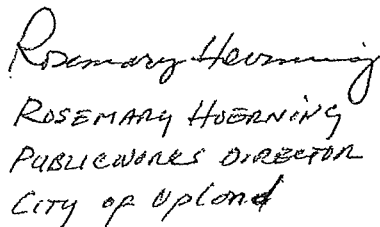 Rosemary Hoerning
ROSEMARY HOERNING
PUBLICWORKS DIRECTOR
CITY OF Upland